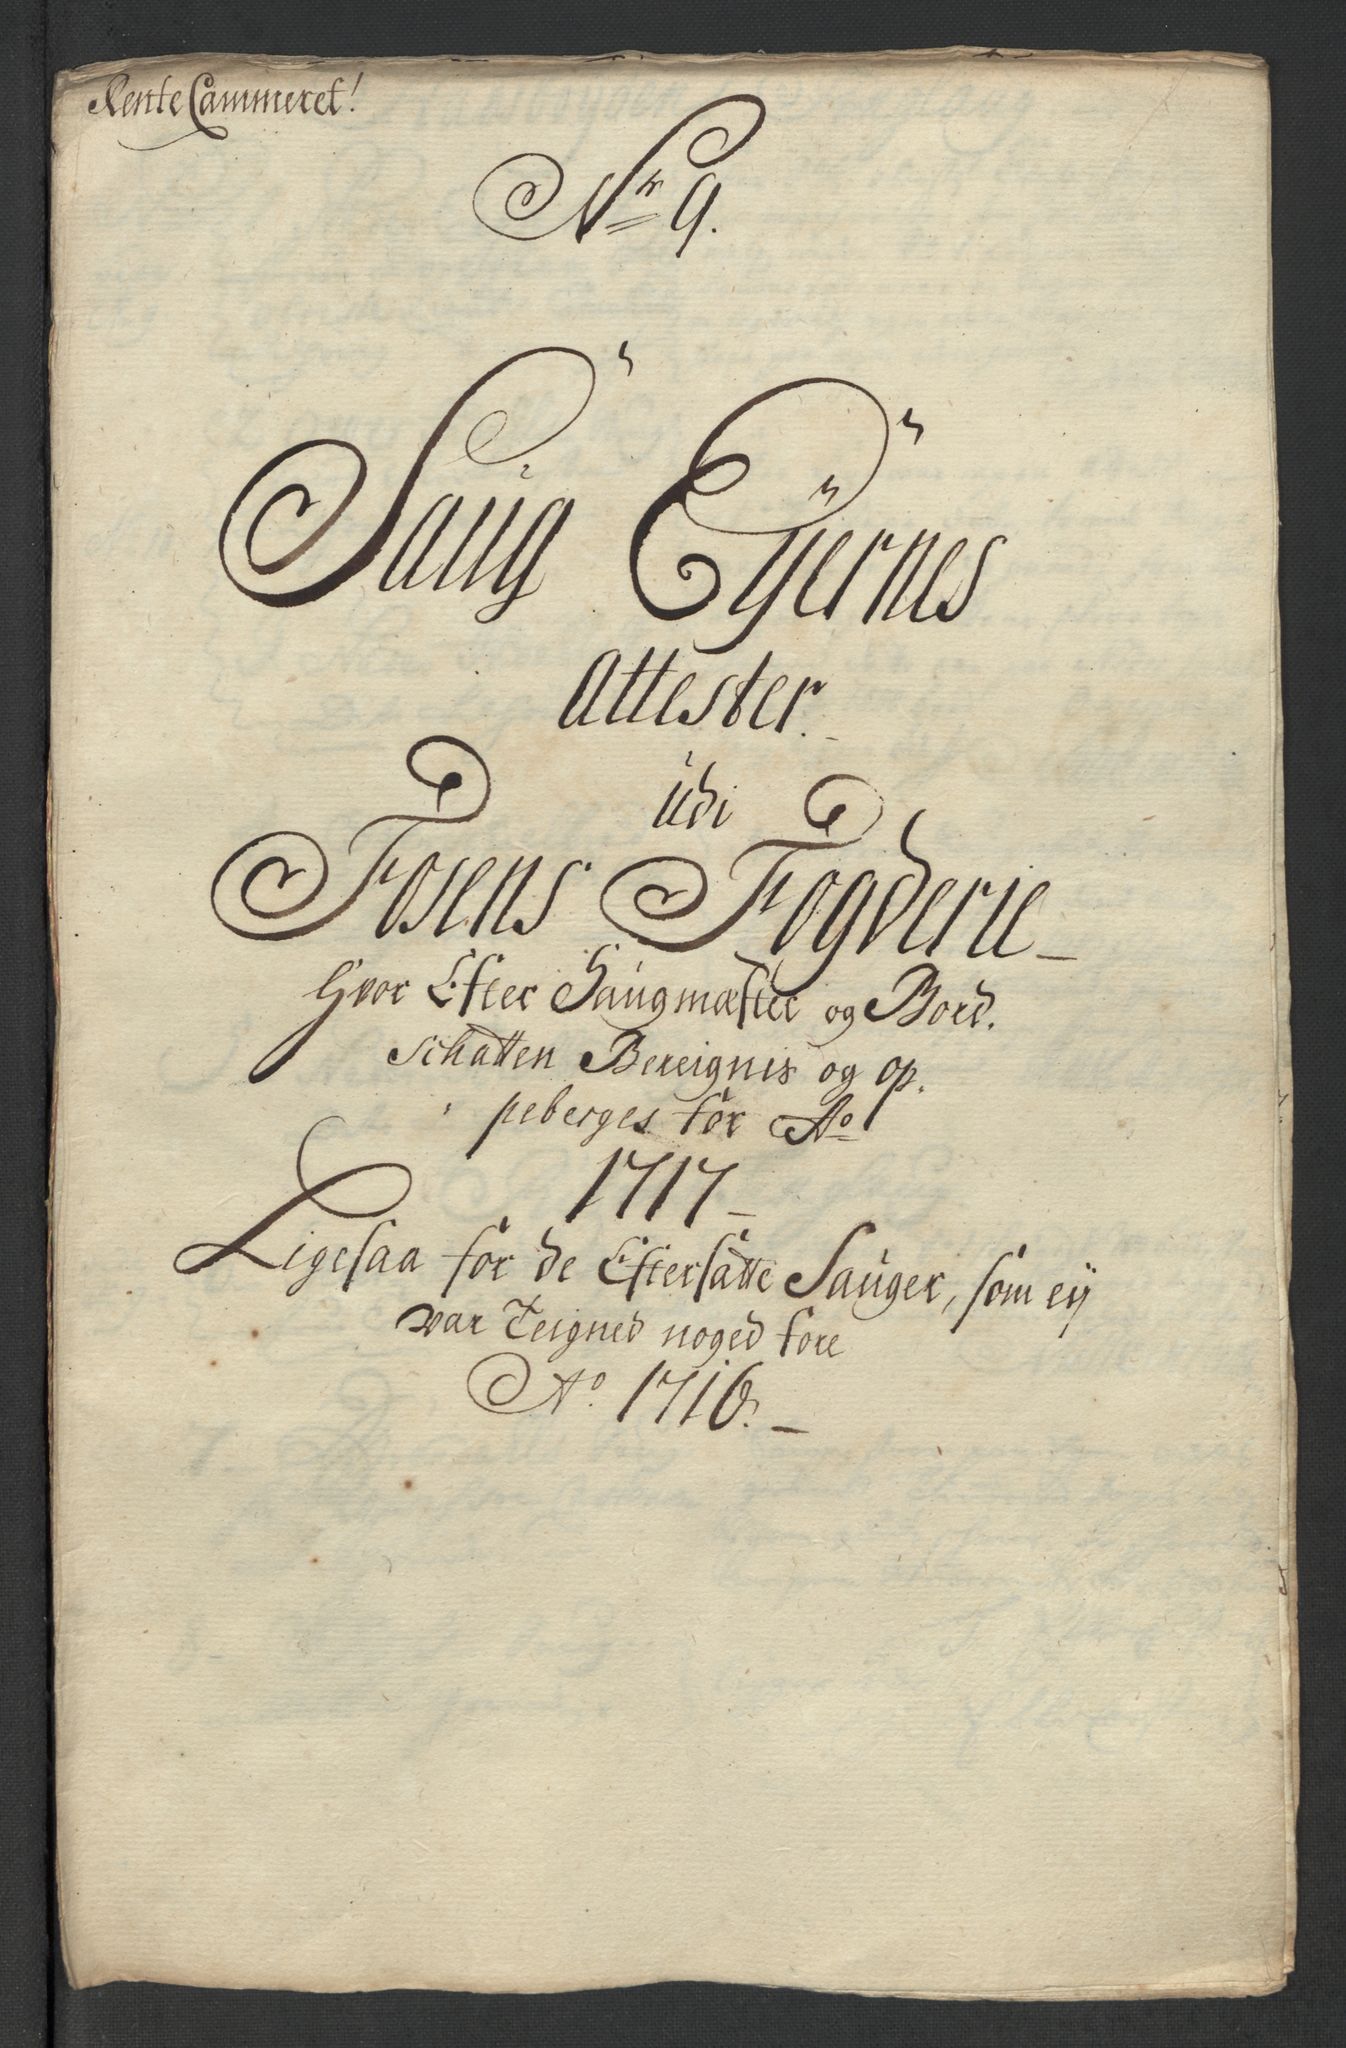 Rente Cammeret!
Nr 9.
Saug Eÿernes
Attester
udi
Fosens Fogderie
Hvor Efter Saugmæster og Bord.
schatten Bereignis og op.
peberges for Ao
1717
Ligesaa for de Eftersatte Sauger, som eÿ
var Teigned noged fore
Ao. 1716.